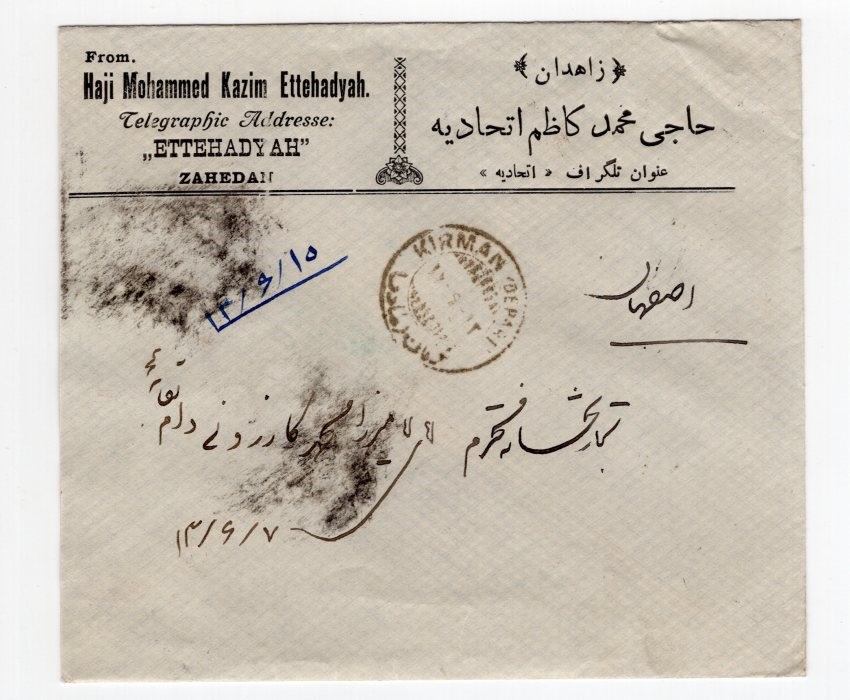 From.
Haji Mohammed Kazim Ettehadyah.
Telegraphic Addresse:
„ETTEHADYAH”
ZAHEDAN
﴿ زاهدان ﴾
حاجی محمد کاظم اتحادیه
عنوان تلگراف « اتحادیه »
۱۳/۶/۱۵
KIRMAN (DEPART
کرمان
اصفهان
تجارتخانه محترم آقای میرزا محمد کازرونی دام بقائه
۱۳/۶/۷